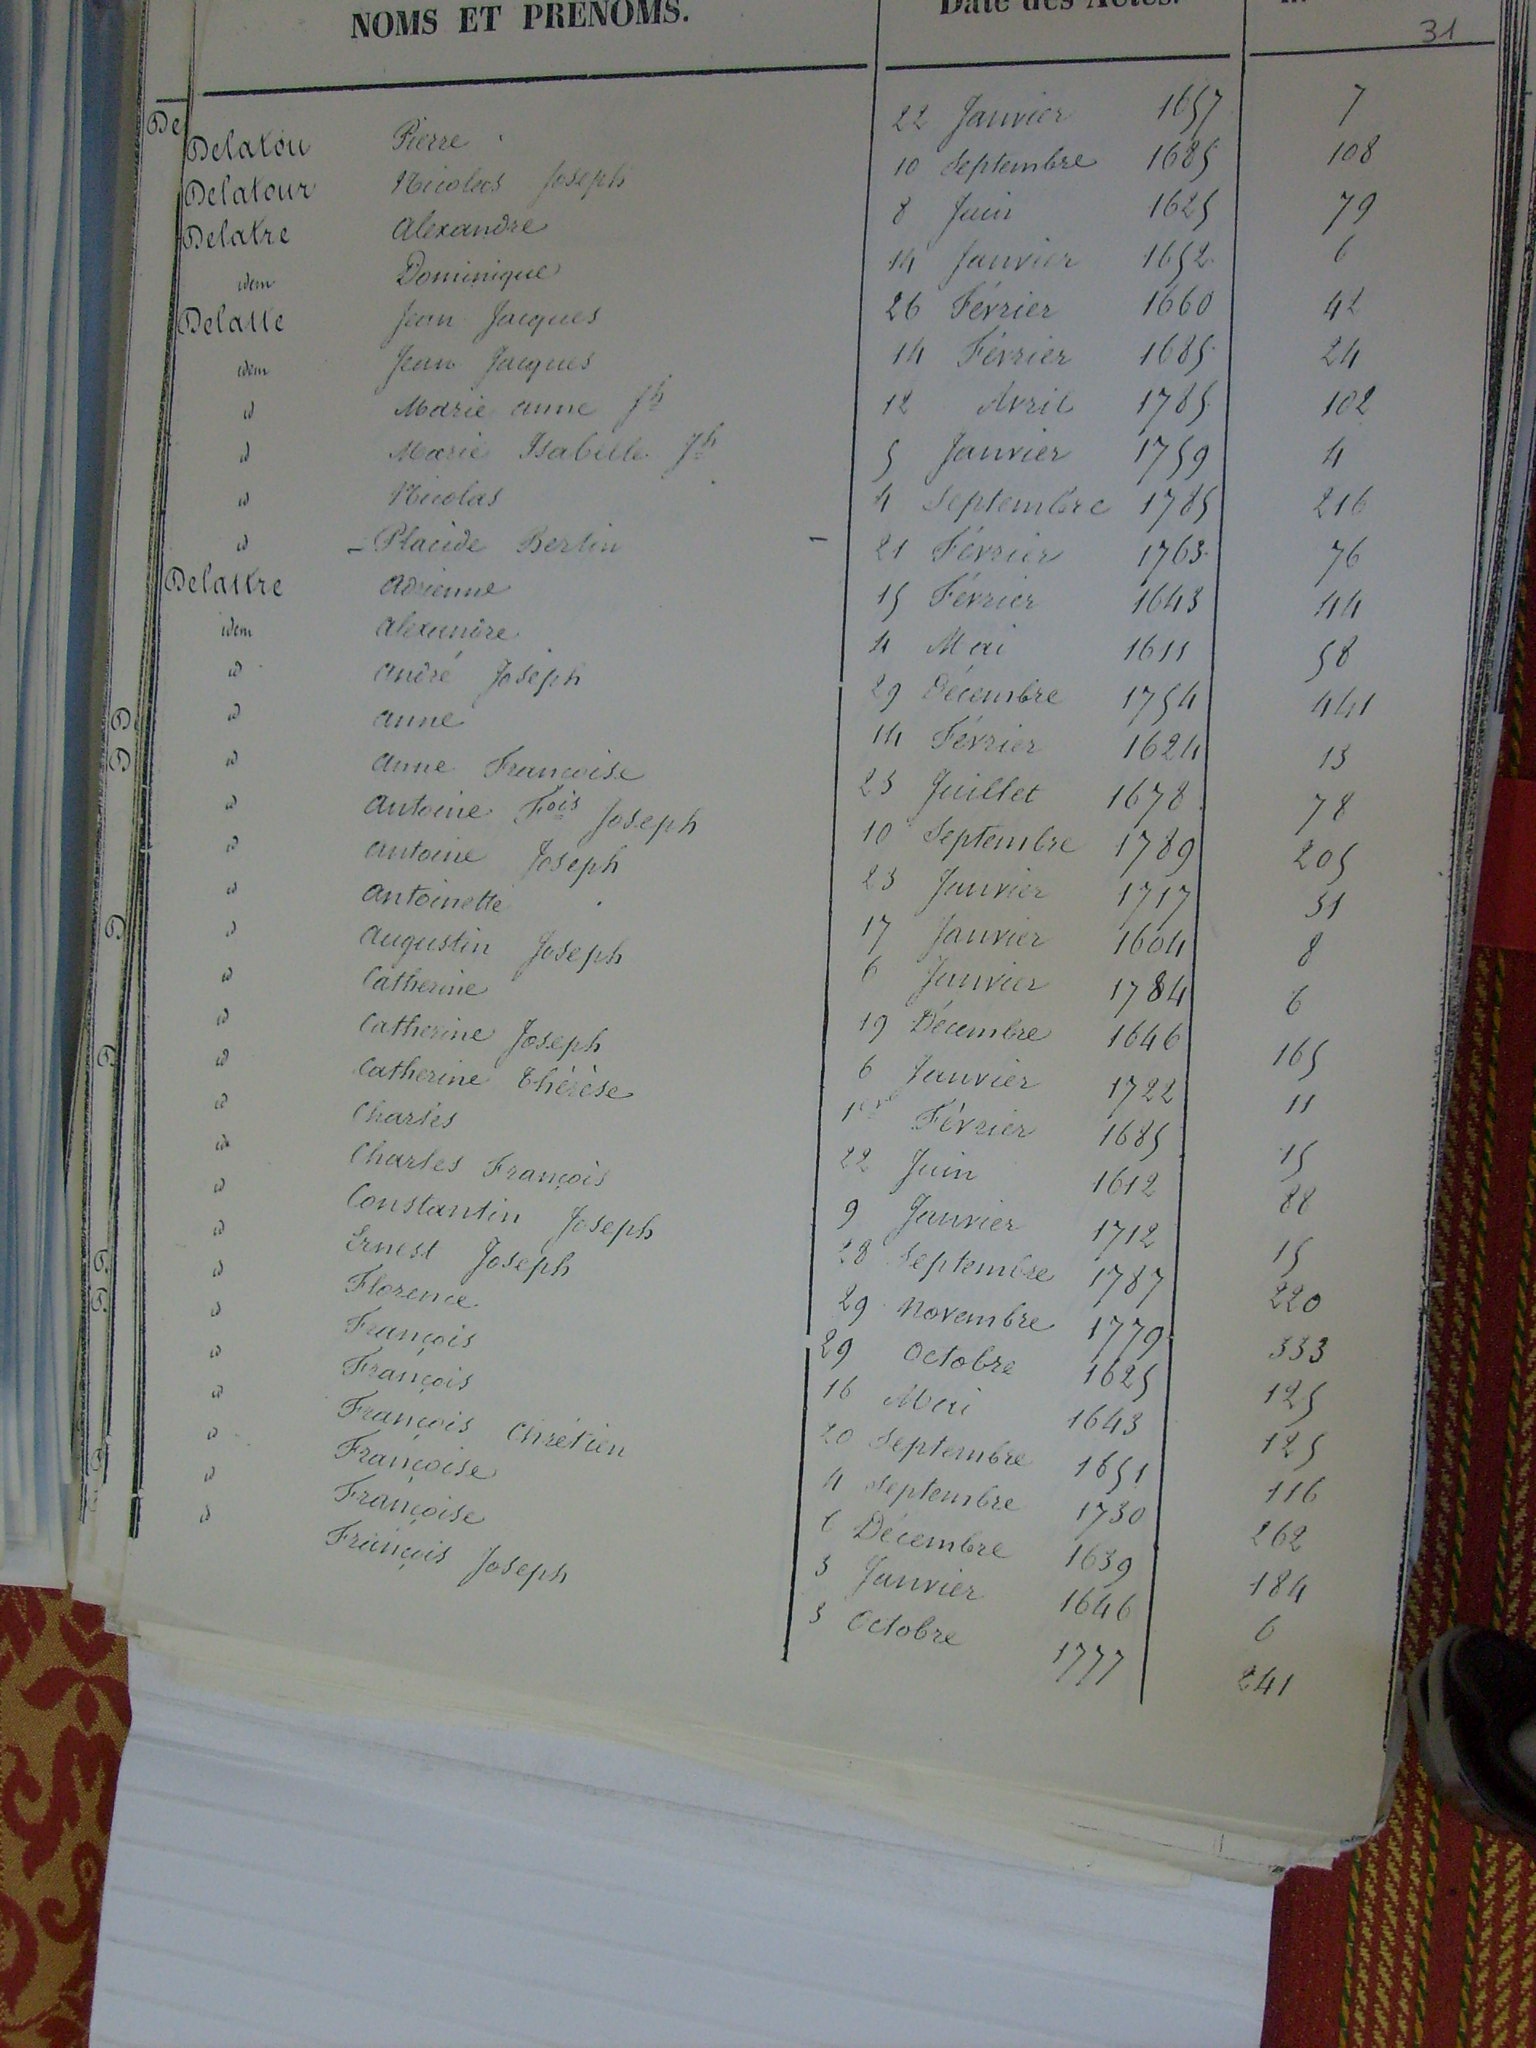 NOMS ET PRÉNOMS. Date des Actes.
31
De
Delatou Pierre 22 Janvier 1657 7
Delatour Nicolas Joseph 10 Septembre 1685 108
Delatre Alexandre 8 Juin 1625 79
idem Dominique 14 Janvier 1652 6
Delatte Jean Jacques 26 Février 1660 42
idem Jean Jacques 14 Février 1685 24
id Marie anne Jh 12 Avril 1785 102
id Marie Isabelle Jh 5 Janvier 1759 4
id Nicolas 4 Septembre 1785 216
id - Placide Bertin - 21 Février 1763 76
Delattre Adrienne 15 Février 1643 44
idem Alexandre 4 Mai 1611 58
id André Joseph 29 Décembre 1754 441
id anne 14 Février 1624 13
id Anne Françoise 23 Juillet 1678 78
id Antoine Fois Joseph 10 Septembre 1789 205
id Antoine Joseph 23 Janvier 1717 31
id Antoinette 17 Janvier 1604 8
id Augustin Joseph 6 Janvier 1784 6
id Catherine 19 Décembre 1646 165
id Catherine Joseph 6 Janvier 1722 11
id Catherine Thérèse 1er Février 1685 15
id Charles 22 Juin 1612 88
id Charles François 9 Janvier 1712 15
id Constantin Joseph 28 Septembre 1787 220
id Ernest Joseph 29 novembre 1779 333
id Florence 29 Octobre 1625 125
id François 16 Mai 1643 125
id François 20 Septembre 1651 116
id François Chrétien 4 Septembre 1730 262
id Françoise 6 Décembre 1639 184
id Françoise 3 Janvier 1646 6
id François Joseph 3 Octobre 1777 241